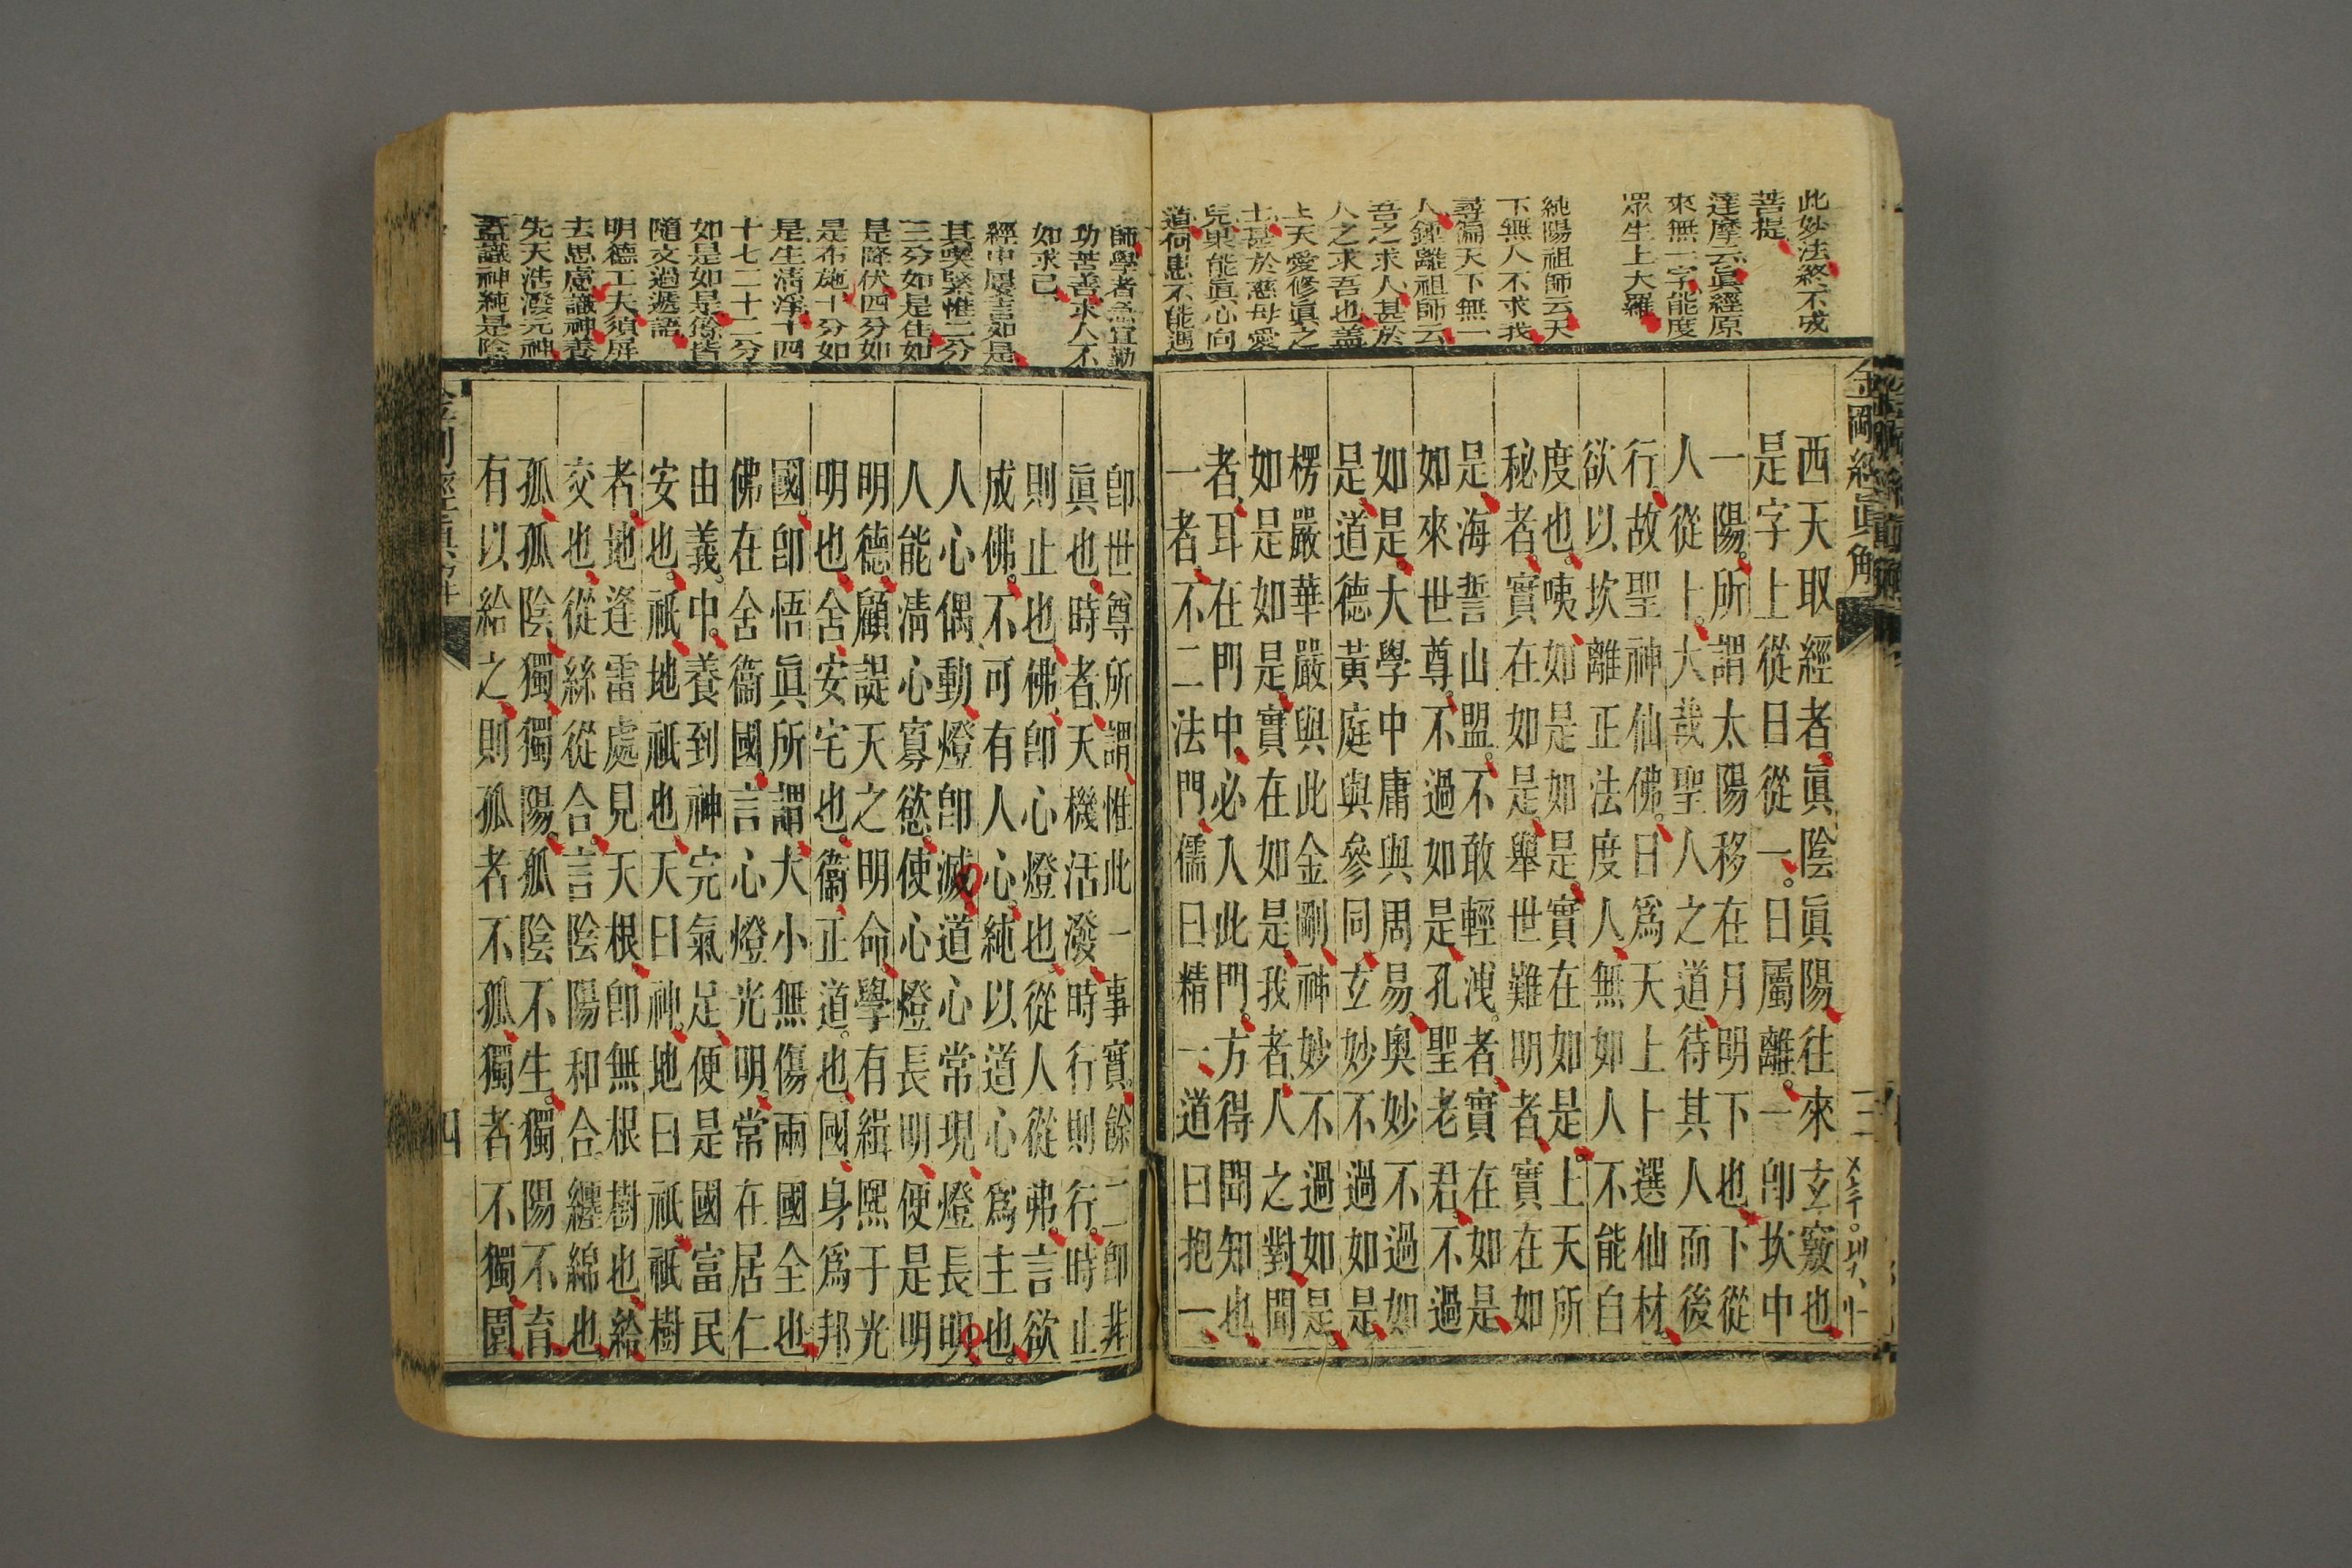 此妙法終不成
菩提
達摩云眞經原
來無一字能度
眾生上大羅
純陽祖師云天
下無人不求我
尋徧天下無一
人鍾離祖師云
吾之求人甚於
人之求吾也蓋
上天愛修眞之
士甚於慈母愛
兒果能眞心向
道何患不能遇
金剛經眞解
三
西天取經者眞陰眞陽往來玄竅也
是字上從日從一日屬離一卽坎中
一陽所謂太陽移在月明下也下從
人從上大哉聖人之道待其人而後
行故聖神仙佛日爲天上卜選仙材
欲以坎離正法度人無如人不能自
度也咦如是如是實在如是上天所
秘者實在如是舉世難明者實在如
是海誓山盟不敢輕洩者實在如是
如來世尊不過如是孔聖老君不過
如是大學中庸與周易奧妙不過如
是道德黃庭與參同玄妙不過如是
楞嚴華嚴與此金剛神妙不過如是
如是如是實在如是我者人之對聞
者耳在門中必入此門方得聞知也
一者不二法門儒曰精一道曰抱一
師學者急宜勤
功苦善求人不
如求己
經中屢言如是
其喫緊惟二分
三分如是住如
是降伏四分如
是布施十分如
是生清淨十四
十七二十二分
如是如是餘皆
隨文過遞語
明德工夫須屏
去思慮識神養
先天活潑元神
蓋識神純是陰
卽世尊所謂惟此一事實餘二卽非
眞也時者天機活潑時行則行時止
則止也佛卽心燈也從人從弗言欲
成佛不可有人心純以道心爲主也
人心偶動燈卽滅道心常現燈長明
人能清心寡慾使心燈長明便是明
明德顧諟天之明命學有緝熙于光
明也舍安宅也衞正道也國身爲邦
國卽悟眞所謂大小無傷兩國全也
佛在舍衞國言心燈光明常在居仁
由義中養到神完氣足便是國富民
安也祇地祇也天曰神地曰祇祇樹
者地逢雷處見天根卽無根樹也給
交也從絲從合言陰陽和合纏綿也
孤孤陰獨獨陽孤陰不生獨陽不育
有以給之則孤者不孤獨者不獨園
四